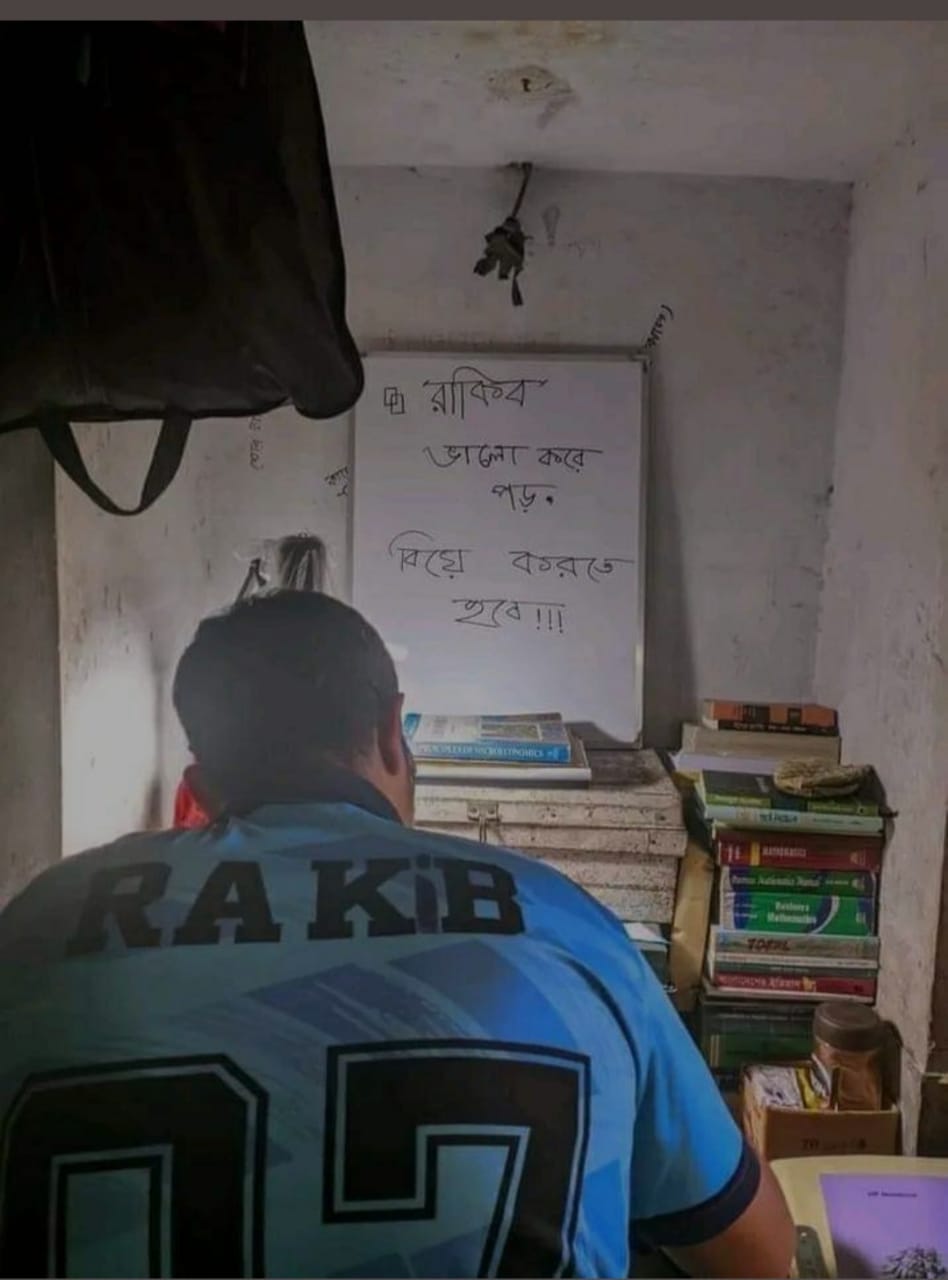 রাকিব
ভালো করে
পড়.
বিয়ে করতে
হবে!!!
PRINCIPLES OF MICROECONOMICS
MATHEMATICS
Business
Mathematics
TOEFL
RAKiB
07